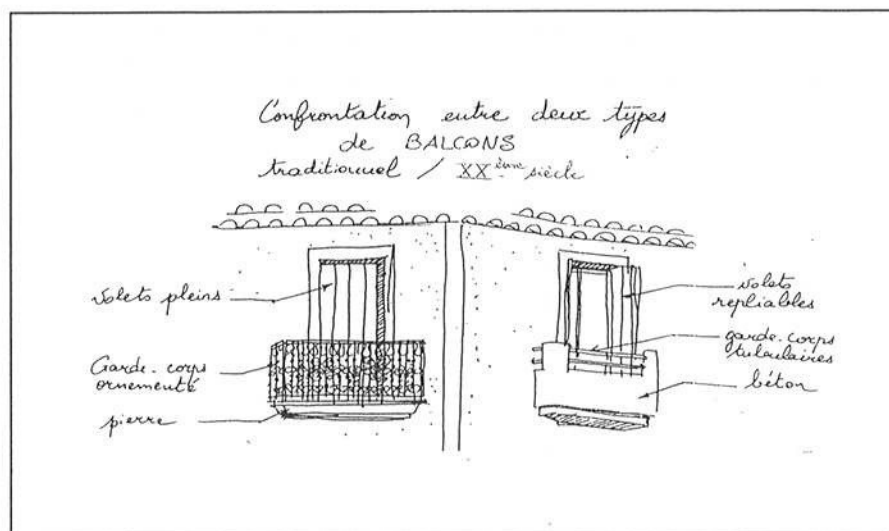 Confrontation entre deux types
de BALCONS
traditionnel / XXème siècle
volets pleins
Garde-corps
ornementé
pierre
volets
repliables
garde-corps
tubulaires
béton